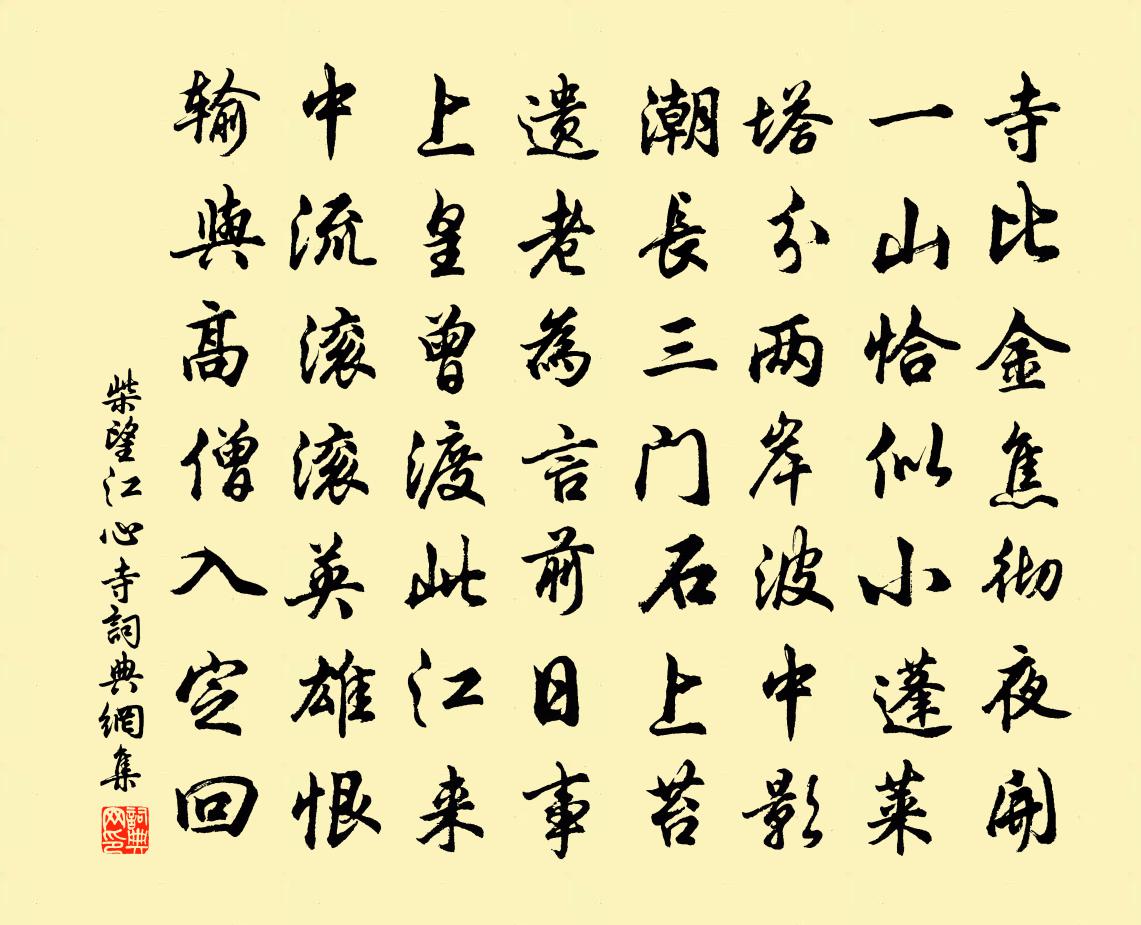 寺比金焦彻夜開
一山恰似小蓬莱
塔分两岸波中影
潮長三门石上苔
遗老為言前日事
上皇曾渡此江来
中流滚滚英雄恨
输與高僧入定回
柴望江心寺詞典網集
詞典網印